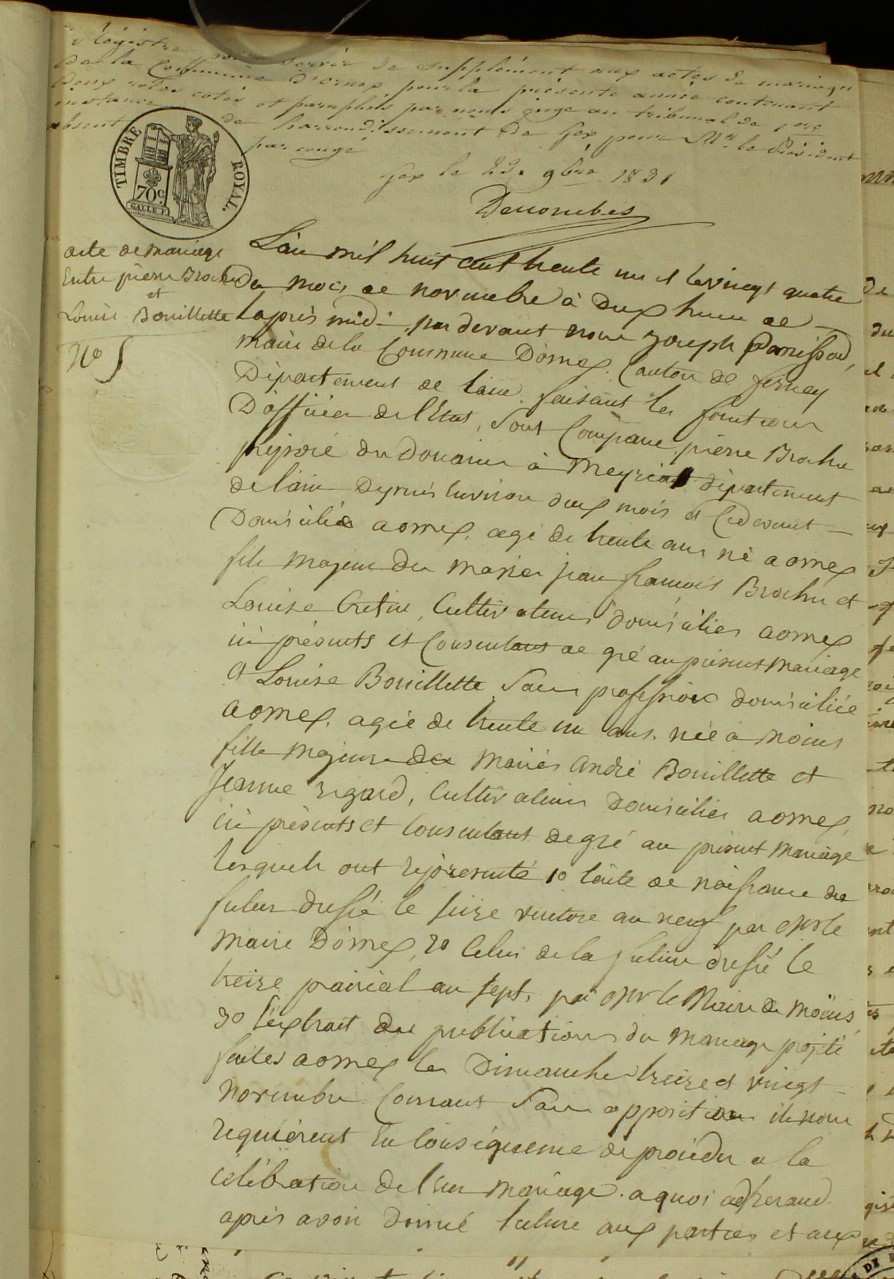 Registre pour servir de supplément aux actes de mariage
de la Commune d'ornex, pour la présente année contenant
deux rôles cotés et paraphés par nous juge au tribunal de 1ere
instance de l'arrondissement de Gex pour Mr. le Président
absent par congé
Gex le 22. 9bre 1831
TIMBRE ROYAL.
70c
acte de mariage
Entre pierre Brochu
et
Louise Bouillette
No 5
L'an mil huit cent trente un et le vingt quatre
du mois de novembre à Deux heures de
l'après midi par devant nous joseph
maire de la Commune D'ornex. Canton de ferney
Département de l'ain. faisant les fonctions
D'officier de l'Etat, sont Comparus, pierre Brochu
préposé des Douanes à Meyrin département
de l'ain Depuis Environ deux mois et Cidevant
Domicilié a ornex, agé de trente ans né a ornex
fils majeur des mariés jean françois Brochu et
Louise, Cultivateurs domiciliés a ornex
ici présents et Consentant de gré au présent mariage
et Louise Bouillette, Sans profession domiciliée
a ornex, agée de trente un ans. née à moëns
fille majeure des mariés andré Bouillette et
Jeanne rigard, Cultivateurs Domiciliés a ornex
ici présents et Consentant de gré au présent mariage
lesquels ont représenté 1o l'acte de naissance du
futur dressé le seize ventose an neuf par Mr le
maire D'ornex, 2o Celui de la future dressé le
treize prairial an sept, par Mr le Maire de Moëns
3o l'extrait des publications du mariage projeté
faites a ornex les Dimanches treize et vingt
Novembre Courant Sans opposition ils nous
requièrent En Conséquence de procéder a la
célébration de leur mariage. a quoi adhérand
après avoir donné lecture aux parties et aux